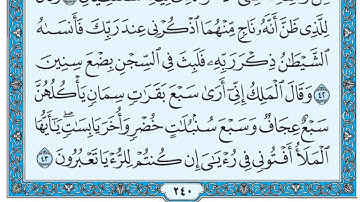 لِلَّذِى ظَنَّ أَنَّهُۥ نَاجٍ مِّنْهُمَا ٱذْكُرْنِى عِندَ رَبِّكَ فَأَنسَىٰهُ
ٱلشَّيْطَٰنُ ذِكْرَ رَبِّهِۦ فَلَبِثَ فِى ٱلسِّجْنِ بِضْعَ سِنِينَ
٤٢ وَقَالَ ٱلْمَلِكُ إِنِّىٓ أَرَىٰ سَبْعَ بَقَرَٰتٍ سِمَانٍ يَأْكُلُهُنَّ
سَبْعٌ عِجَافٌ وَسَبْعَ سُنۢبُلَٰتٍ خُضْرٍ وَأُخَرَ يَابِسَٰتٍ يَٰٓأَيُّهَا
ٱلْمَلَأُ أَفْتُونِى فِى رُءْيَٰىَ إِن كُنتُمْ لِلرُّءْيَا تَعْبُرُونَ ٤٣
٢٤٠